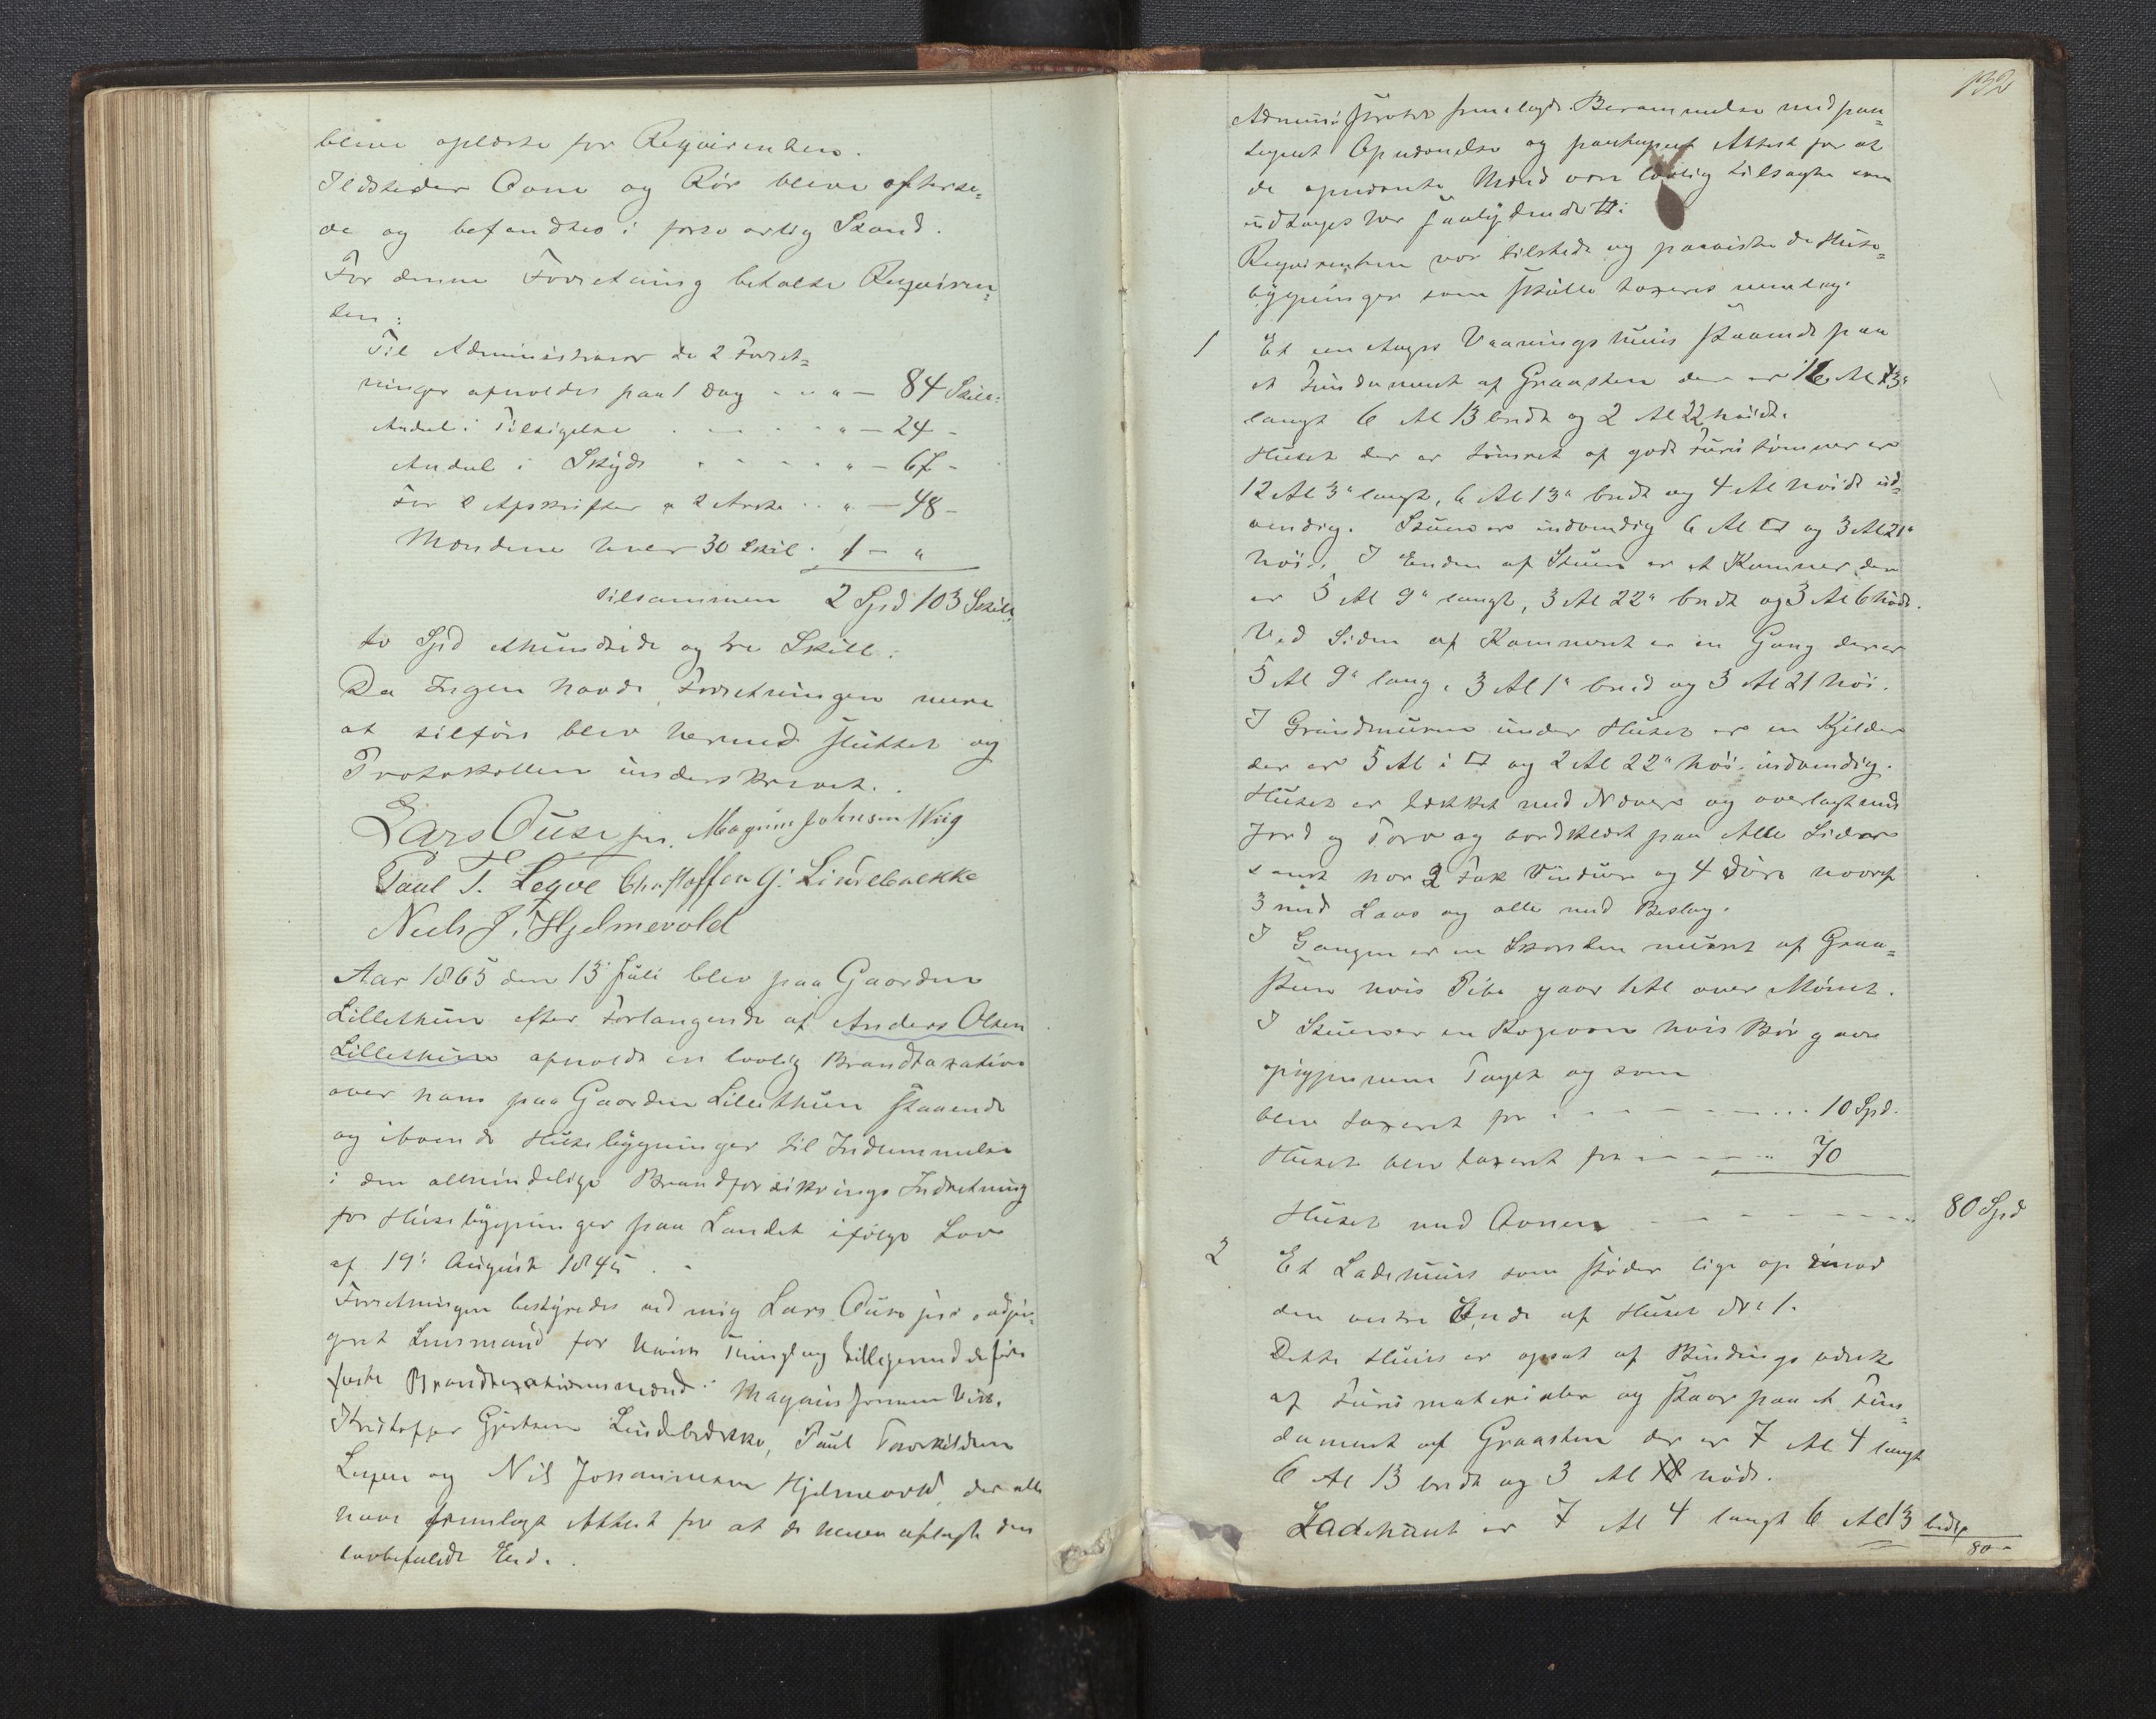 bleve oplæste for Reqvirenten.
Ildsteder Ovne og Rör bleve efterse-
de og befandtes i forsvarlig Stand.
For denne Forretning betalte Reqviren-
ten:
Til Administrator de 2 Forret-
ninger afholdes paa 1 Dag . . " — 84 Skill:
Andel i Tilsigelse . . . . " — 24 -
Andel i Skyds . . . . " — 67 -
For 2 Afskrifter a 2 Arke . . " — 48 -
Mændene hver 30 Skil. 1 — "
tilsammen 2 Spd 103 Skill:
to Spd ethundrede og tre Skill:
Da Ingen havde Forretningen mere
at tilföre blev hermed sluttet og
Protokollen underskrevet.
Lars Ouse jr. Magnus Johnsen Wiig
Paul T. Leqve Christoffer G: Lindebrekke
Niels J. Hjelmevold
Aar 1865 den 13 Juli blev paa Gaarden
Lillethun efter Forlangende af Anders Olsen
Lillethun afholdt en lovlig Brandtaxation
over hans paa Gaarden Lillethun staaende
og iboende Husebygninger til Indlemmelse
i den almindelige Brandforsikrings Indretning
for Husebygninger paa Landet ifölge Lov
af 19: August 1845.
Forretningen bestyredes ved mig Lars Ouse jr. adjun-
geret Lensmand for Hvivis Tinglag tilligemed de föste
faste Brandtaxationsmænd: Magnus Jonsen Viik,
Kristoffer Gjertsen Lindebrekke, Paul Torkildsen
Leqve og Nils Johannesen Hjelmevold, der alle
have fremlagt Attest for at de have aflagt den
lovbefalede Eed.
132
Administrator fremlagde Berammelse med paa-
tegnet Opnævnelse og paategnet Attest for at
de opnævnte Mænd vare lovlig tilsagte som
udtages her saalydende:
Reqvirenten var tilstede og paaviste de Huse-
bygninger som skulle taxeres nemlig.
1 Et een etages Vaanings huus staaende paa
et Fundament af Graasten der er 16 Al 13"
langt 6 Al 13 bredt og 2 Al 22 höidt.
Huset der er tömret af godt Furu tömmer er
12 Al 3" langt, 6 Al 13" bredt og 4 Al höidt ud-
vendig. Stuen er indvendig 6 Al □ og 3 Al 21"
höi. I Enden af Stuen er et Kammer der
er 5 Al 9" langt, 3 Al 22" bredt og 3 Al 6 höidt.
Ved Siden af Kammeret er en Gang der er
5 Al 9" lang, 3 Al 1" bred og 3 Al 21 höi.
I Grundmuren under Huset er en Kjelder
der er 5 Al i □ og 2 Al 22" höi indvendig.
Huset er tækket med Næver og overlagt med
Jord og Torv og bordklædt paa Alle Sider
samt har 2 Fak Vinduer og 4 Döre hvoraf
3 med Laas og alle med Beslag.
I Gangen er en Skorsten muret af Graa-
steen hvis Pibe gaar 1 Al over Mönet.
I Stuen er en Kogeovn hvis Rör gaar
op igjennem Taget og som
blev taxeret for . . . . . . . 10 Spd.
Huset blev taxeret for . . . . 70
Huset med Ovnen . . . . . . . 80 Spd
2 Et Ladehuus som stöder lige op imod
den vestre Ende af Huset Nr: 1.
Dette Huus er opsat af Bindings værk
af Furu materialer og staar paa et Fun-
dament af Graasten der er 7 Al 4 langt
6 Al 13 bredt og 3 Al höidt.
Ladehuset er 7 Al 4 langt 6 Al 13 bredt
80 -